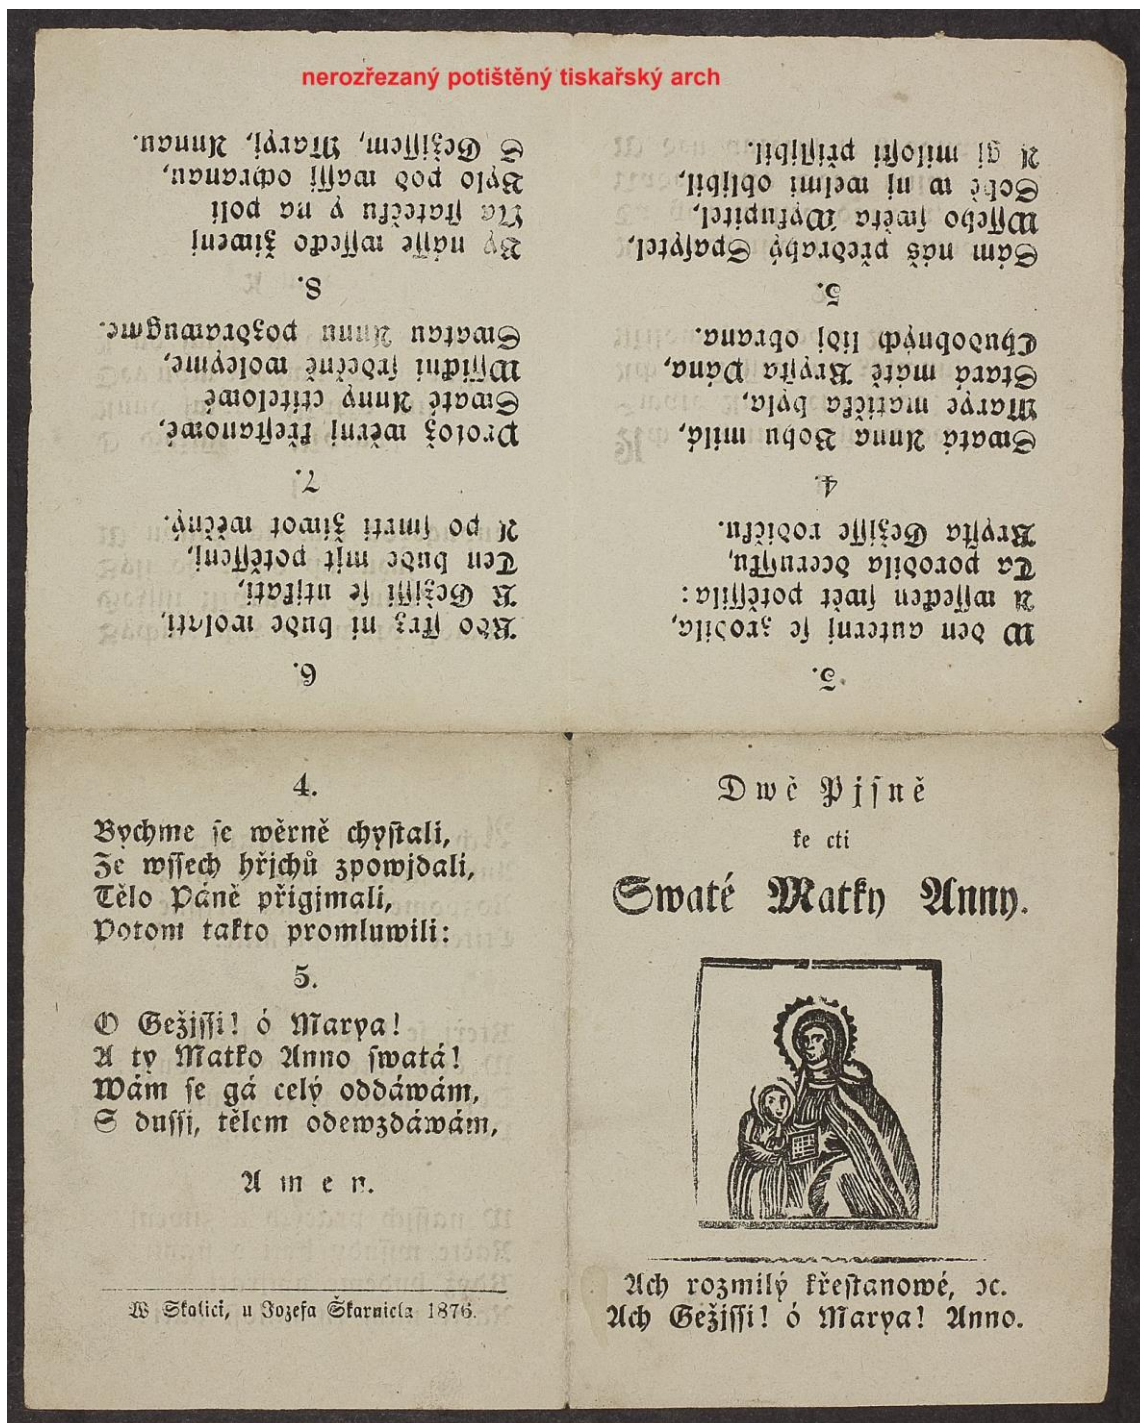 nerozřezaný potištěný tiskařský arch
3.
W den auternj ſe zrodila,
A wſſecken ſwět potěſſila:
Ta porodila dceruſſku,
Kryſta Gežiſſe rodičku.
4.
Swatá Anna Bohu milá,
Marye matička byla,
Stará matě Kryſta Pána,
Chudobných lidj obrana.
5.
Sám náš předrahý Spaſytel,
Wſſeho ſwěta Wykupitel,
Sobě w nj welmi obljbil,
A gj miloſti přiſljbil.
6.
Kdo ſkrz ni bude wolati,
K Gežjſſi ſe utjkati,
Ten bude mjt potěſſenj,
A po ſmrti žiwot wěčný.
7.
Protož wěrnj křeſtanowé,
Swaté Anny ctitelowé
Wſſickni ſrdečně woleyme,
Swatau Annu pozdrawugme.
8.
By náſſe wſſecko žiwenj
Na ſtatečku y na poli
Bylo pod waſſj ochranau,
S Gežiſſem, Maryj, Annau.
4.
Bychme ſe wěrně chyſtali,
Ze wſſech hřjchů zpowjdali,
Tělo Páně přigjmali,
Potom takto promluwili:
5.
O Gežjſſi! ó Marya!
A ty Matko Anno ſwatá!
Wám ſe gá celý oddáwám,
S duſſi, tělem odewzdáwám,
Amen.
W Skalici, u Jozefa Škarnicla 1876.
Dwě Pjſně
ke cti
Swaté Matky Anny.
Ach rozmilý křeſtanowé, ꝛc.
Ach Gežjſſi! ó Marya! Anno.